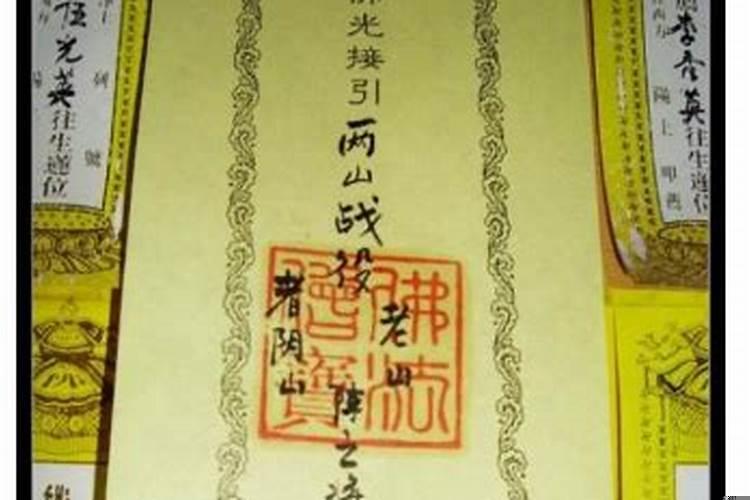 佛光接引
两山战役
老山
者阴山
陣亡
佛法僧寶
伍光英往生蓮位
英往生蓮位
陽上